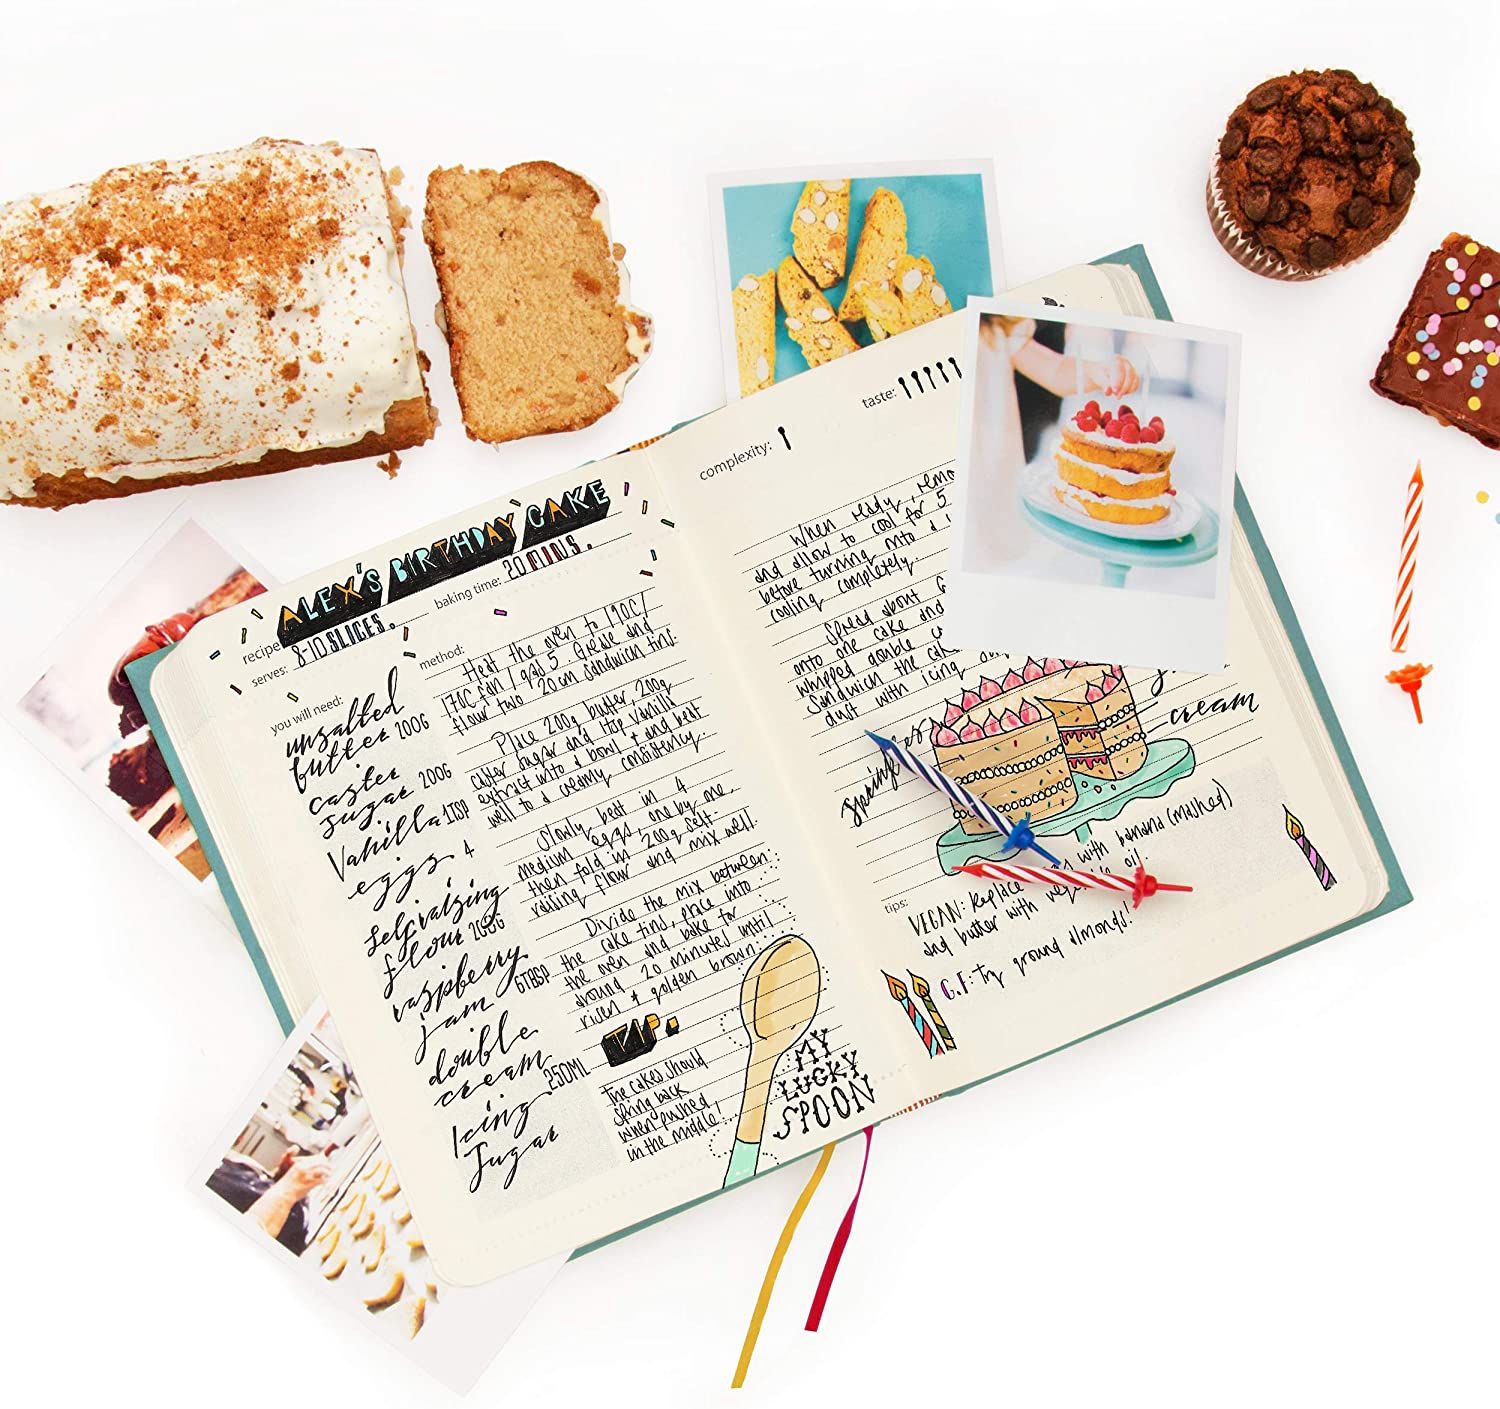 ALEX'S BIRTHDAY CAKE
recipe
serves: 8-10 SLICES.
baking time: 20 MINS.
you will need:
unsalted
butter 200G
caster
sugar 200G
Vanilla 1TSP
eggs 4
self raising
flour 200G
raspberry
jam 6TBSP
double
cream 250ML
Icing
Sugar
method:
Heat the oven to 190C/
170C fan/gas 5. Grease and
flour two 20cm sandwich tins.
Place 200g butter, 200g
caster sugar and 1tsp vanilla
extract into a bowl & and beat
well to a creamy consistency.
Slowly beat in 4
medium eggs, one by one,
then fold in 200g self-
raising flour and mix well.
Divide the mix between
the cake tins, place into
the oven and bake for
around 20 minutes until
risen & golden brown.
TIP:
The cakes should
spring back
when pushed
in the middle!
MY
LUCKY
SPOON
complexity:
taste:
When ready, remo
and allow to cool for 5
before turning onto a
cooling completely.
Spread about 6
onto one cake and
whipped double c
Sandwich the cake
dust with icing
cream
tips:
VEGAN: Replace with banana (mashed)
and butter with oil.
G.F: Try ground almonds!